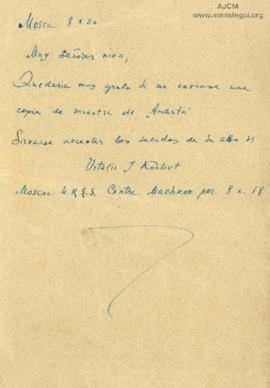 AJCM
www.mariategui.org
Mosca 8 X 30
Muy Señores mios,
Quedaria muy grato si me enviasen una
copia de muestra de "Amauta"
Sirvanse acceptar los saludos de Su atto
Vitalis J
Moscou U.R.S.S. Centre. Machkov per. 8 18